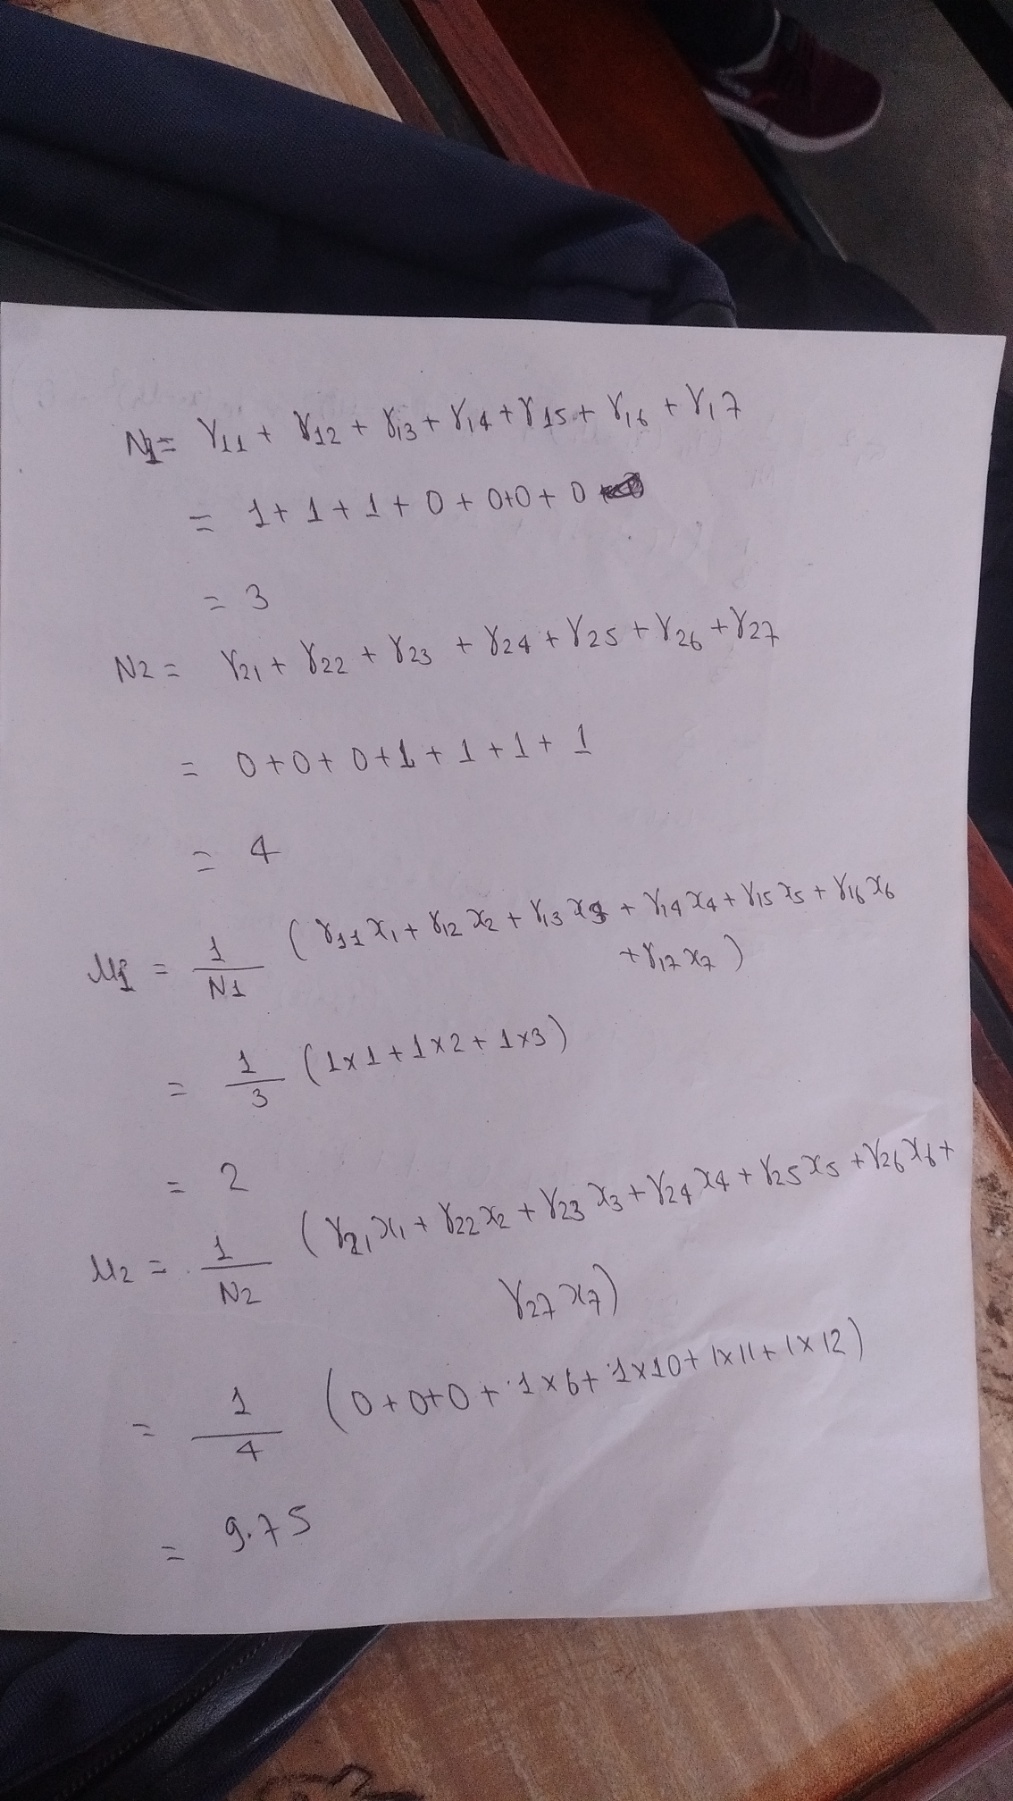 N1 = γ11 + γ12 + γ13 + γ14 + γ15 + γ16 + γ17
= 1 + 1 + 1 + 0 + 0+0 + 0
= 3
N2 = γ21 + γ22 + γ23 + γ24 + γ25 + γ26 + γ27
= 0+0+ 0+1 + 1 +1+ 1
= 4
μ1 = 1/N1 (γ11 x1 + γ12 x2 + γ13 x3 + γ14 x4 + γ15 x5 + γ16 x6
+ γ17 x7)
= 1/3 (1×1 + 1×2 + 1×3)
= 2
μ2 = 1/N2 (γ21 x1 + γ22 x2 + γ23 x3 + γ24 x4 + γ25 x5 + γ26 x6 +
γ27 x7)
= 1/4 (0+0+0 + 1×6 + 1×10 + 1×11 + 1×12)
= 9.75